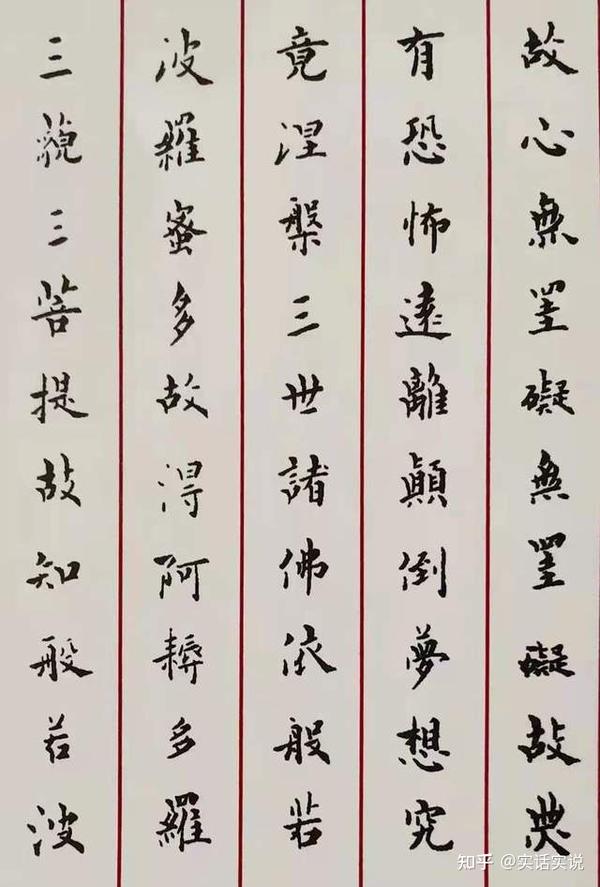 故心無罣礙無罣礙故無
有恐怖遠離顛倒夢想究
竟涅槃三世諸佛依般若
波羅蜜多故得阿耨多羅
三藐三菩提故知般若波
知乎 @实话实说